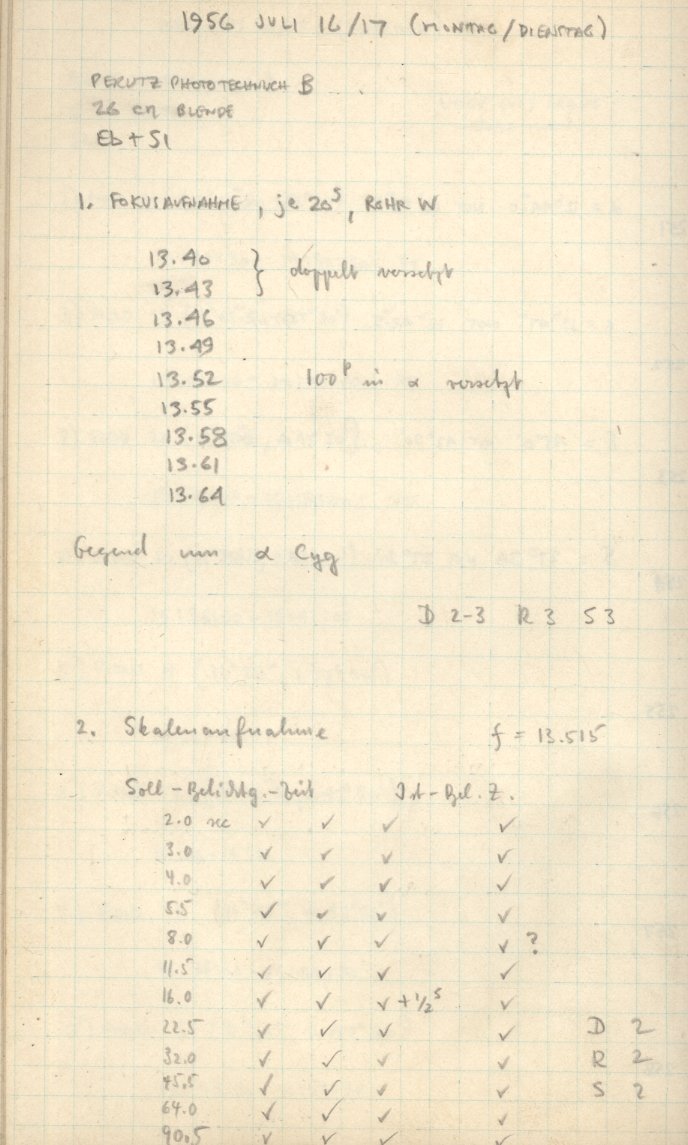 1956 JULI 16/17 (MONTAG/DIENSTAG)
PERUTZ PHOTOTECHNISCH B
26 cm BLENDE
Eb + S1
1. FOKUSAUFNAHME, je 20s, ROHR W
13.40
13.43 } doppelt versetzt
13.46
13.49
13.52 100p in α versetzt
13.55
13.58
13.61
13.64
Gegend um α Cyg
D 2-3 R 3 S 3
2. Skalenaufnahme f = 13.515
Soll-Belichtg.-Zeit Ist-Bel. Z.
2.0 sec ✓ ✓ ✓ ✓
3.0 ✓ ✓ ✓ ✓
4.0 ✓ ✓ ✓ ✓
5.5 ✓ ✓ ✓ ✓
8.0 ✓ ✓ ✓ ✓ ?
11.5 ✓ ✓ ✓ ✓
16.0 ✓ ✓ ✓ + 1/2 s ✓
22.5 ✓ ✓ ✓ ✓ D 2
32.0 ✓ ✓ ✓ ✓ R 2
45.5 ✓ ✓ ✓ ✓ S 2
64.0 ✓ ✓ ✓ ✓
90.5 ✓ ✓ ✓ ✓